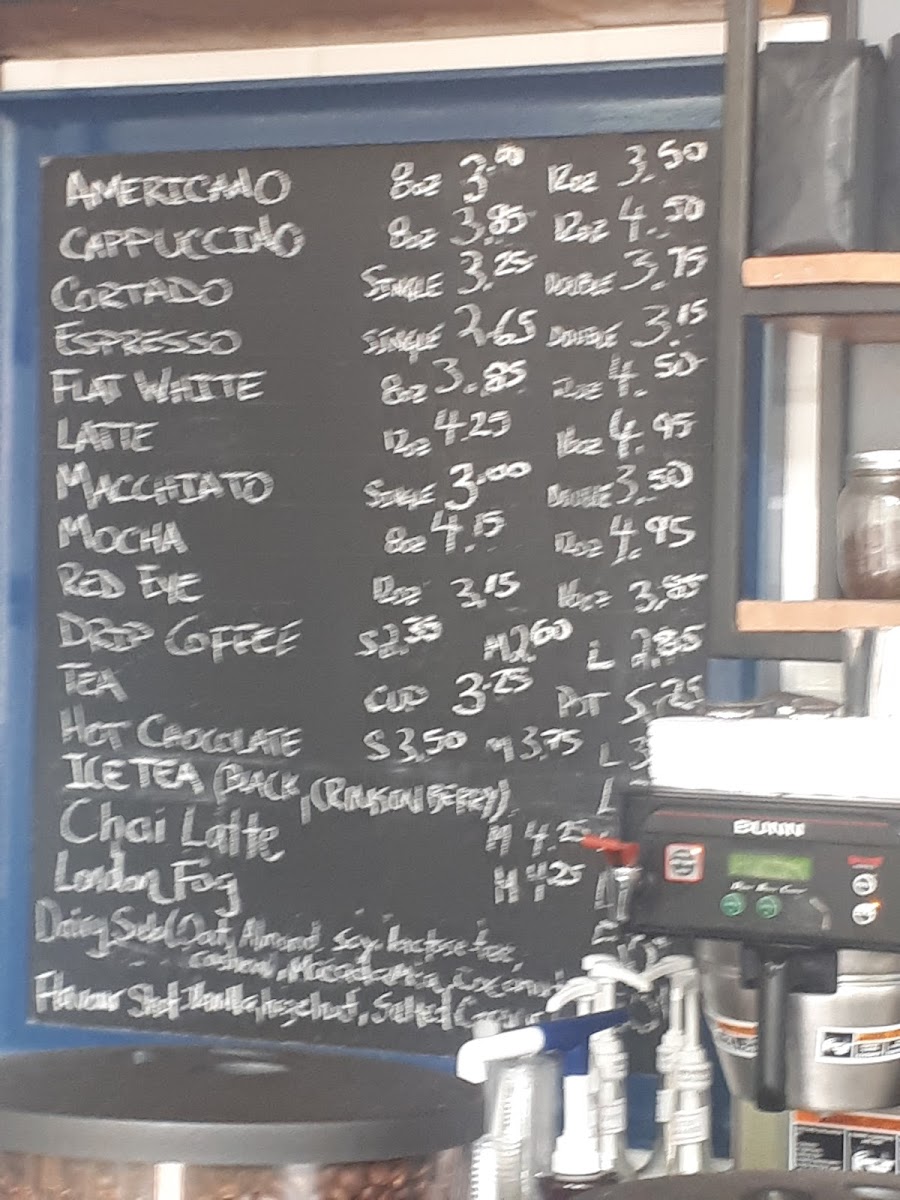 AMERICANO 8oz 3.00 12oz 3.50
CAPPUCCINO 8oz 3.85 12oz 4.50
CORTADO SINGLE 3.25 DOUBLE 3.75
ESPRESSO SINGLE 2.65 DOUBLE 3.15
FLAT WHITE 8oz 3.85 12oz 4.50
LATTE 12oz 4.25 16oz 4.95
MACCHIATO SINGLE 3.00 DOUBLE 3.50
MOCHA 8oz 4.15 12oz 4.95
RED EYE 12oz 3.15 16oz 3.85
DRIP COFFEE S 2.35 M 2.60 L 2.85
TEA CUP 3.25 POT 5.25
HOT CHOCOLATE S 3.50 M 3.75 L 3
ICE TEA (BLACK,
Chai Latte M 4.25
London Fog M 4.25
Dairy Sub (Oat, Almond, Soy, lactose free,
cashew, Macadamia, Coconut
Flavour Shot Vanilla, hazelnut, Salted
BUNN